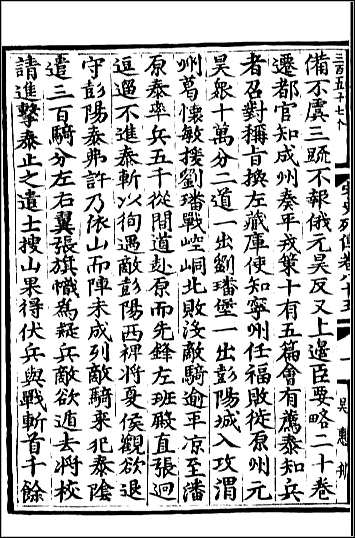 備不虞三疏不報俄元昊反又上邊臣要略二十卷
遷都官知成州奏平戎策十有五篇會有薦泰知兵
者召對稱旨換左藏庫使知寧州任福敗徙原州元
昊衆十萬分二道一出劉璠堡一出彭陽城入攻渭
州葛懷敏援劉璠戰崆峒北敗沒敵騎逾平凉至潘
原泰率兵五千從間道赴原而先鋒左班殿直張迥
逗遛不進泰斬以徇遇敵彭陽西裨將夏侯觀欲退
守彭陽泰弗許乃依山而陣未成列敵騎來犯泰陰
遣三百騎分左右翼張旗幟爲疑兵敵欲遁去將校
請進擊泰止之遣士搜山果得伏兵與戰斬首千餘